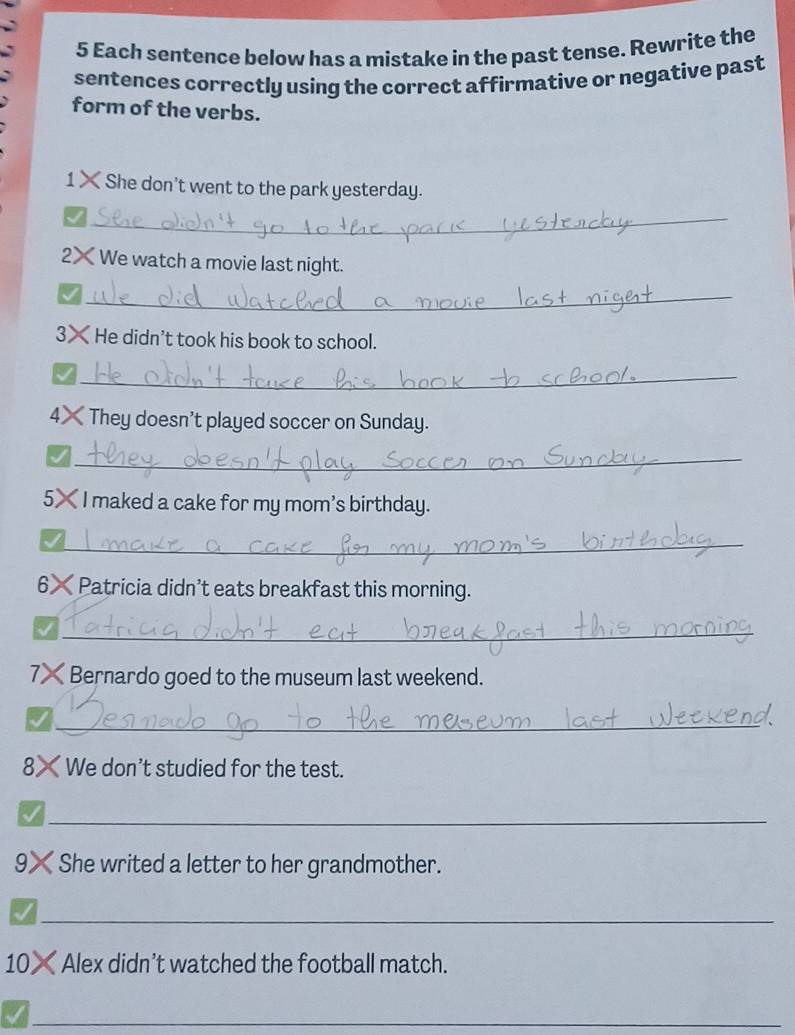 5 Each sentence below has a mistake in the past tense. Rewrite the
sentences correctly using the correct affirmative or negative past
form of the verbs.
1 ❌ She don't went to the park yesterday.
✅ She didn't go to the park yesterday
2 ❌ We watch a movie last night.
✅ We did watched a movie last night
3 ❌ He didn't took his book to school.
✅ He didn't take his book to school.
4 ❌ They doesn't played soccer on Sunday.
✅ they doesn't play soccer on Sunday
5 ❌ I maked a cake for my mom's birthday.
✅ I make a cake for my mom's birthday
6 ❌ Patricia didn't eats breakfast this morning.
✅ Patricia didn't eat breakfast this morning
7 ❌ Bernardo goed to the museum last weekend.
✅ Bernado go to the museum last weekend.
8 ❌ We don't studied for the test.
✅
9 ❌ She writed a letter to her grandmother.
✅
10 ❌ Alex didn't watched the football match.
✅